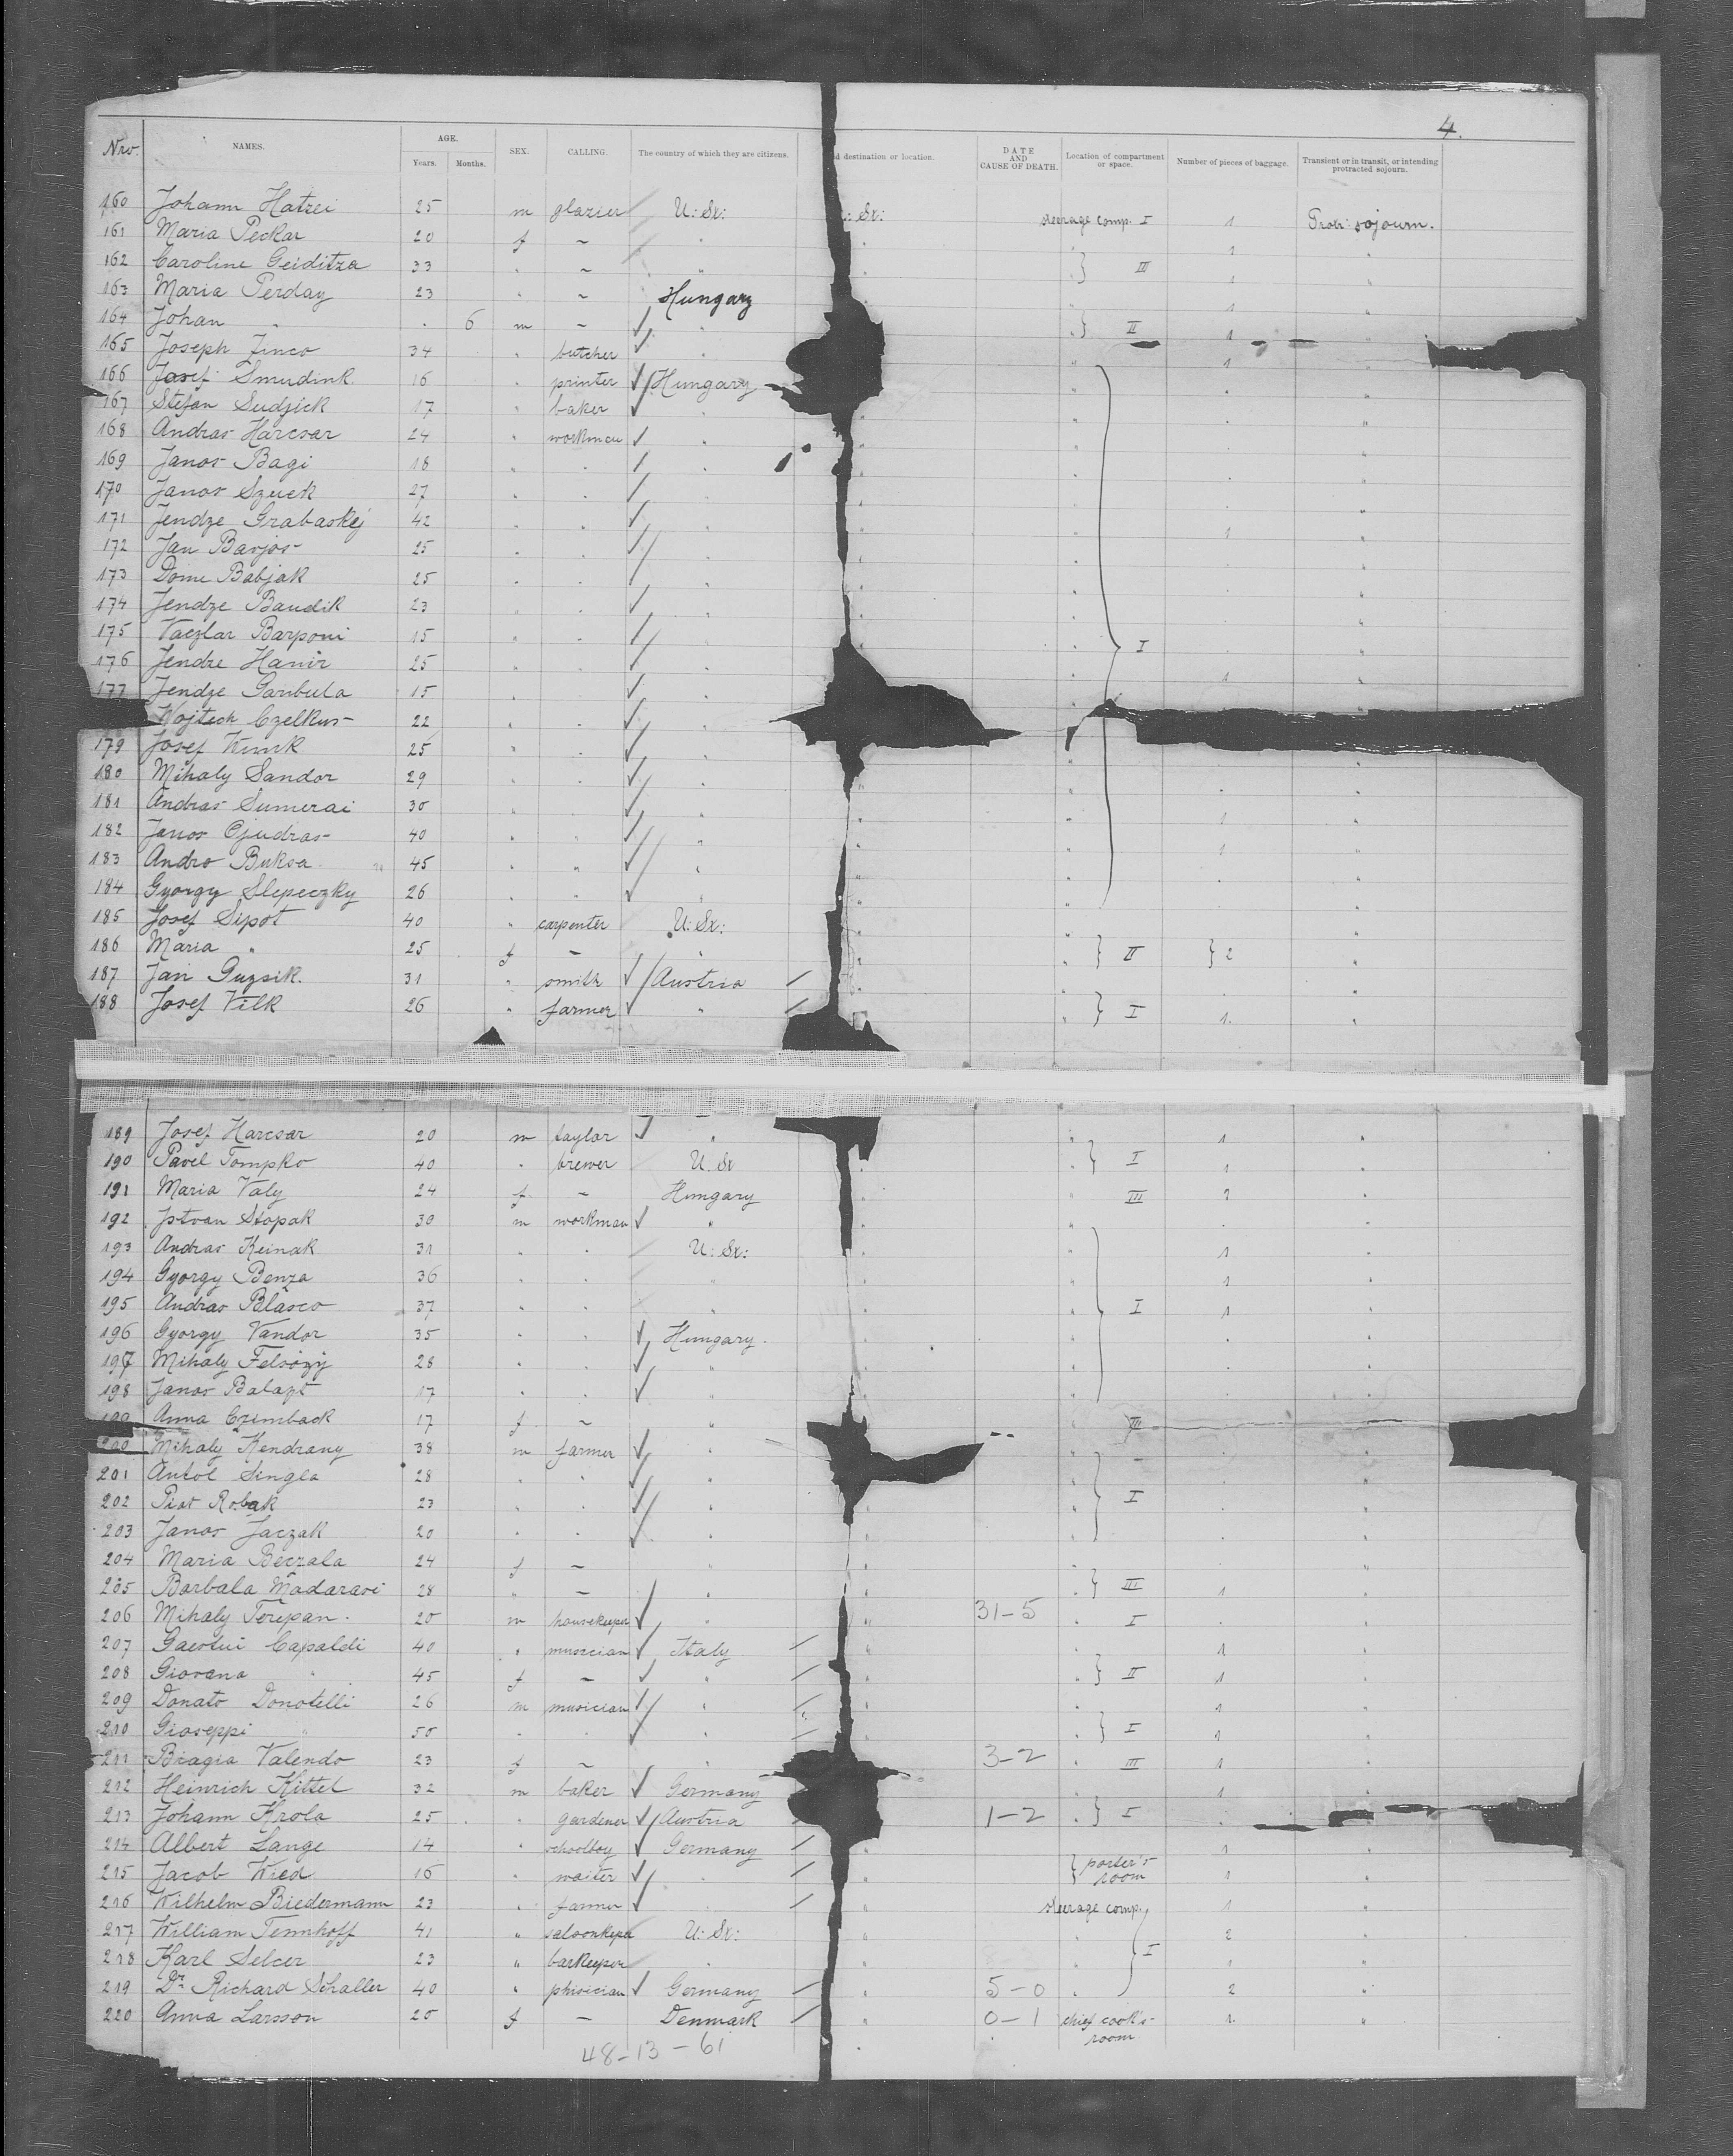 4.
Nro. NAMES. AGE. Years. Months. SEX. CALLING. The country of which they are citizens. d destination or location. DATE AND CAUSE OF DEATH. Location of compartment or space. Number of pieces of baggage. Transient or in transit, or intending protracted sojourn.
160 Johann Hatzei 25 m glazier U: St: : St: steerage comp. I 1 Protr: sojourn.
161 Maria Peckar 20 f ~ " " 1 "
162 Caroline Geiditza 33 " ~ " " } III 1 "
163 Maria Perday 23 " ~ Hungary 1 "
164 Johan " . 6 m ~ " } II 1 "
165 Joseph Zinco 34 " butcher " " 1
166 Josef Smudink 16 " printer Hungary " "
167 Stefan Sudzick 17 " baker " " " "
168 Andras Harcsar 24 " workmen " " " "
169 Janos Bagi 18 " " " " " "
170 Janos Szuck 27 " " " " " "
171 Jendze Grabaskej 42 " " " " " "
172 Jan Barjos 25 " " " " " 1 "
173 Dome Babjak 25 " " " " " "
174 Jendze Baudik 23 " " " " " "
175 Vaczlar Barponi 15 " " " " " "
176 Jendre Hanir 25 " " " " I "
177 Jendze Garibula 15 " " " " 1 "
Wojtech Czelkus 22 " " "
179 Josef Kunk 25 " " "
180 Mihaly Sandor 29 " " " " "
181 Andras Sumerai 30 " " " " " "
182 Janos Ojudras 40 " " " " 1 "
183 Andro Buksa 45 " " " " 1 "
184 Gyorgy Slepeczky 26 " " " " " "
185 Josef Sipot 40 " carpenter U: St: " " "
186 Maria " 25 f ~ " " } II } 2 "
187 Jan Guzsik. 31 " smith Austria " "
188 Josef Vilk 26 " farmer " " } I 1. "
189 Josef Harcsar 20 m taylor " " 1 "
190 Pavel Tompko 40 " brewer U: St " } I 1 "
191 Maria Valy 24 f ~ Hungary " III 1 "
192 Istvan Stopak 30 m workman " " " "
193 Andras Keinak 31 " " U: St: " " 1 "
194 Gyorgy Benza 36 " " " " " 1 "
195 Andras Blasco 37 " " " " I 1 "
196 Gyorgy Vandor 35 " " Hungary. " " "
197 Mihaly Felsozy 28 " " " " " "
198 Janos Balazt 17 " " " " " "
199 Anna Czimback 17 f ~ " III
200 Mihaly Kendrany 38 m farmer " " "
201 Antol Singla 28 " " " " "
202 Piot Robak 23 " " " " I "
203 Janos Jaczak 20 " " " " " "
204 Maria Beczala 24 f ~ " " "
205 Barbala Madarasi 28 " ~ " " } III 1 "
206 Mihaly Terepan. 20 m housekeeper " " 31-5 " I "
207 Gaestui Capaldi 40 " musccian Italy " " 1 "
208 Giovana " 45 f ~ " " } II 1 "
209 Donato Donotelli 26 m musician " " " 1 "
210 Gioseppi " 50 " " " } I 1 "
211 Biagia Valendo 23 f ~ " 3-2 " III 1 "
212 Heinrich Kittel 32 m baker Germany " 1
213 Johann Krola 25 " gardener Austria 1-2 } I
214 Albert Lange 14 " schoolboy Germany " 1 "
215 Jacob Wied 16 " waiter " " } porter's room 1 "
216 Wilhelm Biedermann 23 " farmer " " steerage comp. 1 "
217 William Temhoff 41 " saloonkeper U: St: " " 2 "
218 Karl Selcer 23 " barkeeper " " " I 1 "
219 Dr. Richard Schaller 40 " phisician Germany " 5-0 " 2 "
220 Anna Larsson 20 f ~ Denmark " 0-1 chief cook's room 1. "
48-13-61